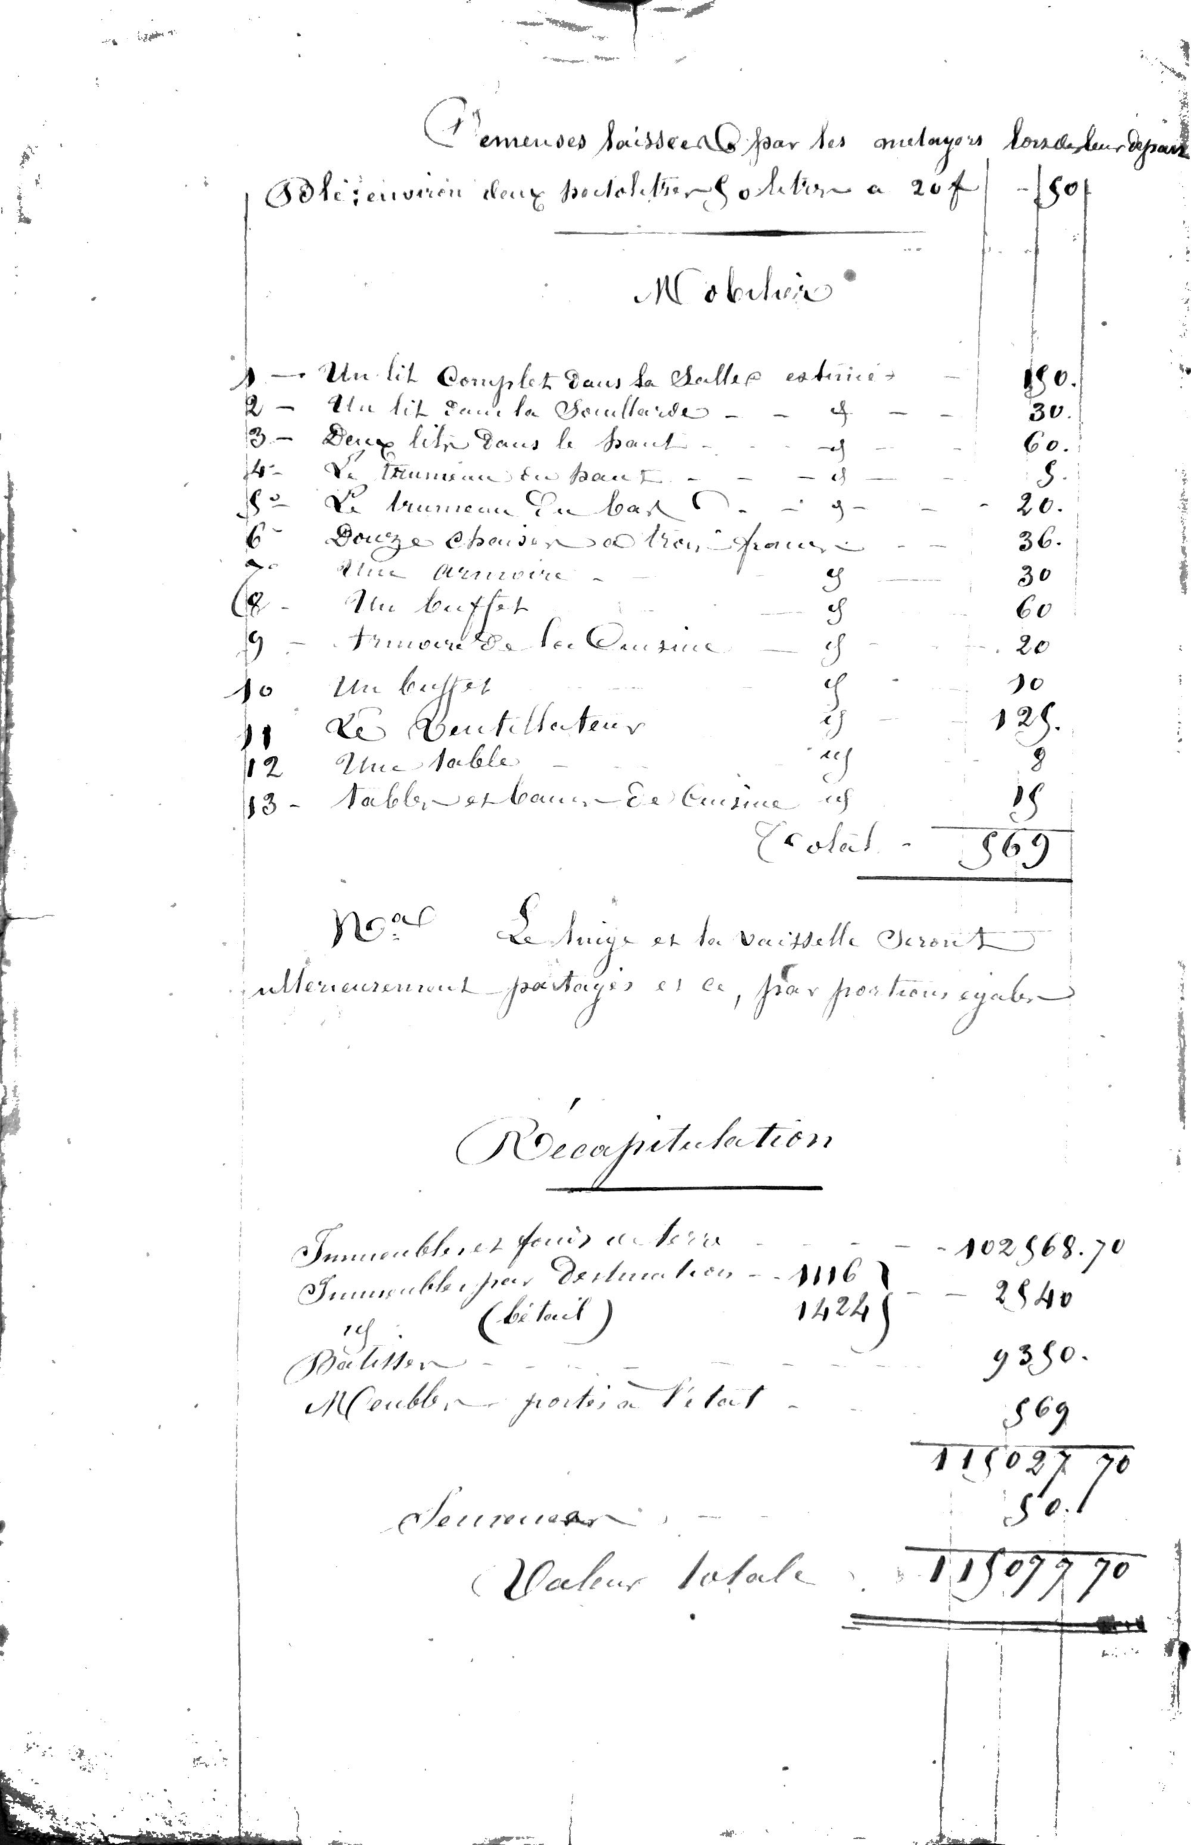 Semenses laissées par les metayers lors de leur départ
Blé: environ deux hectolitres 50 litres a 20f - 50
Mobilier
1 - Un lit Complet dans la Salle estimé - 150.
2 - Un lit dans la Souillarde - - id - - 30.
3 - Deux lits dans le haut - id - 60.
4 - Le trumeau du haut - - id - 5.
5° - Le trumeau du bas - - id - - 20.
6 - Douze chaises a trois francs - - 36.
7° Une armoire - id - 30
8 - Un buffet id 60
9 - Armoire de la Cuisine - id - 20
10 Un buffet id - 10
11 Le Ventillateur id - 125.
12 Une table - id 8
13 - tables et bancs de Cuisine id 15
Total - 569
Nta Le linge et la vaisselle seront
ulterieurement partagés et ce, par portions egales
Récapitulation
Immeubles et fonds de terre - - - - 102568.70
Immeubles par Destination - - 1116 } - - 2540
id (bétail) 1424 }
Batisses - - - - - 9350.
Meubles portés a l'état - - 569
115027 70
Semences - - 50.
Valeur totale 115077 70